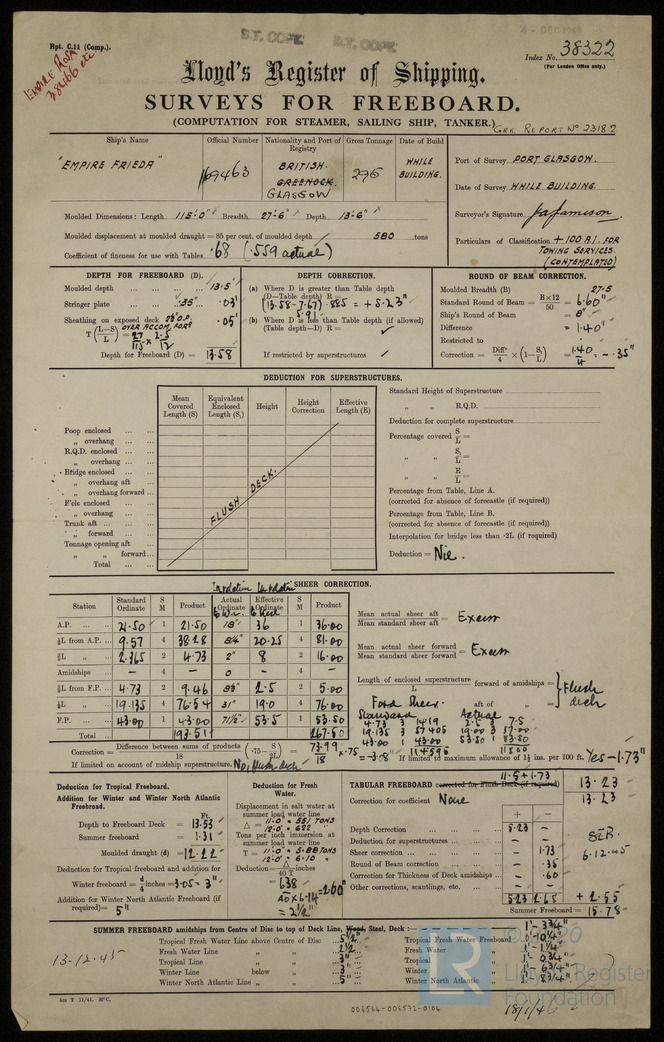 Rpt. C.11 (Comp.).
B.T. COPY B.T. COPY
Index No. 38322
(For London Office only.)
EMPIRE ROSA
38466 etc
Lloyd's Register of Shipping.
SURVEYS FOR FREEBOARD.
(COMPUTATION FOR STEAMER, SAILING SHIP, TANKER.)
GRK. REPORT No 23182
Ship's Name Official Number Nationality and Port of Registry Gross Tonnage Date of Build
"EMPIRE FRIEDA" 169463 BRITISH. GREENOCK. GLASGOW 296 WHILE BUILDING.
Port of Survey PORT GLASGOW.
Date of Survey WHILE BUILDING.
Surveyor's Signature JAJameson.
Particulars of Classification +100 A.1. FOR TOWING SERVICES. (CONTEMPLATED)
Moulded Dimensions: Length 115'-0" Breadth 27'-6" Depth 13'-6"
Moulded displacement at moulded draught = 85 per cent. of moulded depth 580 tons
Coefficient of fineness for use with Tables .68 (.559 actual)
DEPTH FOR FREEBOARD (D).
Moulded depth 13.5
Stringer plate .35" .03
Sheathing on exposed deck
T (L-S/L) = OVER ACCOM. FORD .05
Depth for Freeboard (D) = 13.58
DEPTH CORRECTION.
(a) Where D is greater than Table depth
(D-Table depth) R =
(13.58-7.67) .885 = +5.23"
5.91
(b) Where D is less than Table depth (if allowed)
(Table depth-D) R =
If restricted by superstructures
ROUND OF BEAM CORRECTION.
Moulded Breadth (B) 27.5
Standard Round of Beam = B×12/50 = 6.60"
Ship's Round of Beam = 8"
Difference = 1.40"
Restricted to
Correction = Diff/4 × (1-S1/L) = 1.40/4 = -.35"
DEDUCTION FOR SUPERSTRUCTURES.
Mean Covered Length (S) Equivalent Enclosed Length (S1) Height Height Correction Effective Length (E)
Poop enclosed
„ overhang
R.Q.D. enclosed
„ overhang
Bridge enclosed
„ overhang aft
„ overhang forward
F'cle enclosed
„ overhang
Trunk aft
„ forward
Tonnage opening aft
„ „ forward
Total
FLUSH DECK.
Standard Height of Superstructure
„ „ R.Q.D.
Deduction for complete superstructure
Percentage covered S/L =
„ „ S1/L =
„ „ E/L =
Percentage from Table, Line A.
(corrected for absence of forecastle (if required))
Percentage from Table, Line B.
(corrected for absence of forecastle (if required))
Interpolation for bridge less than ·2L (if required)
Deduction = Nil.
SHEER CORRECTION.
Station Standard Ordinate S M Product Actual Ordinate Effective Ordinate S M Product
A.P. 21.50 1 21.50 18" 36 1 36.00
⅙L from A.P. 9.57 4 38.28 8¾" 20.25 4 81.00
⅓L „ 2.365 2 4.73 2" 8 2 16.00
Amidships – 4 – 0 – 4 –
⅓L from F.P. 4.73 2 9.46 2.5 2 5.00
⅙L „ 19.135 4 76.54 31" 19.0 4 76.00
F.P. 43.00 1 43.00 71½" 53.5 1 53.50
Total 193.51 267.50
Mean actual sheer aft / Mean standard sheer aft = Excess
Mean actual sheer forward / Mean standard sheer forward = Excess
Length of enclosed superstructure / L forward of amidships =
„ aft of „ =
Flush deck
Ford Sheer.
Standard Actual
4.73 3 14.19 2.5 3 7.5
19.135 3 57.405 19.00 3 57.00
43.00 1 43.00 53.50 1 53.50
114.595 118.00
Correction = Difference between sums of products / 18 (·75 - S/2L) = 73.99/18 × .75 = -3.08"
If limited on account of midship superstructure. No, flush deck
If limited to maximum allowance of 1½ ins. per 100 ft. Yes -1.73"
Deduction for Tropical Freeboard.
Addition for Winter and Winter North Atlantic Freeboard.
Ft.
Depth to Freeboard Deck = 13.53
Summer freeboard = 1.31
Moulded draught (d) = 12.22
Deduction for Tropical freeboard and addition for
Winter freeboard = d/4 inches = 3.05 - 3"
Addition for Winter North Atlantic Freeboard (if required) = 5"
Deduction for Fresh Water.
Displacement in salt water at summer load water line
Δ = 11'.0" = 551 TONS
12'.0" = 622
Tons per inch immersion at summer load water line
T = 11'.0" = 5.88 TONS
12'.0" = 6.10 „
Deduction = Δ/40 T inches
= 638/40×6.14 = 2.60"
= 2½"
TABULAR FREEBOARD corrected for Flush Deck (if required) 11.5+1.73 13.23
Correction for coefficient None 13.23
+ -
Depth Correction 5.23 –
Deduction for superstructures – –
Sheer correction – 1.73
Round of Beam correction – .35
Correction for Thickness of Deck amidships – .60
Other corrections, scantlings, etc. – –
5.23 2.65 +2.55
Summer Freeboard = 15.78
6.12.45
SUMMER FREEBOARD amidships from Centre of Disc to top of Deck Line, Wood, Steel, Deck :— 1'- 3¾"
Tropical Fresh Water Line above Centre of Disc 5½" Tropical Fresh Water Freeboard 0'-10¼"
Fresh Water Line „ „ 2½" Fresh Water „ 1'- 1¼"
Tropical Line „ „ 3" Tropical „ 1'- 0¾"
Winter Line below „ 3" Winter „ 1'- 6¾"
Winter North Atlantic Line „ „ 5" Winter North Atlantic „ 1'- 8¾"
13-12-45
LR
© 2020
Lloyd's Register
Foundation
006564-006572-0104
18/1/46